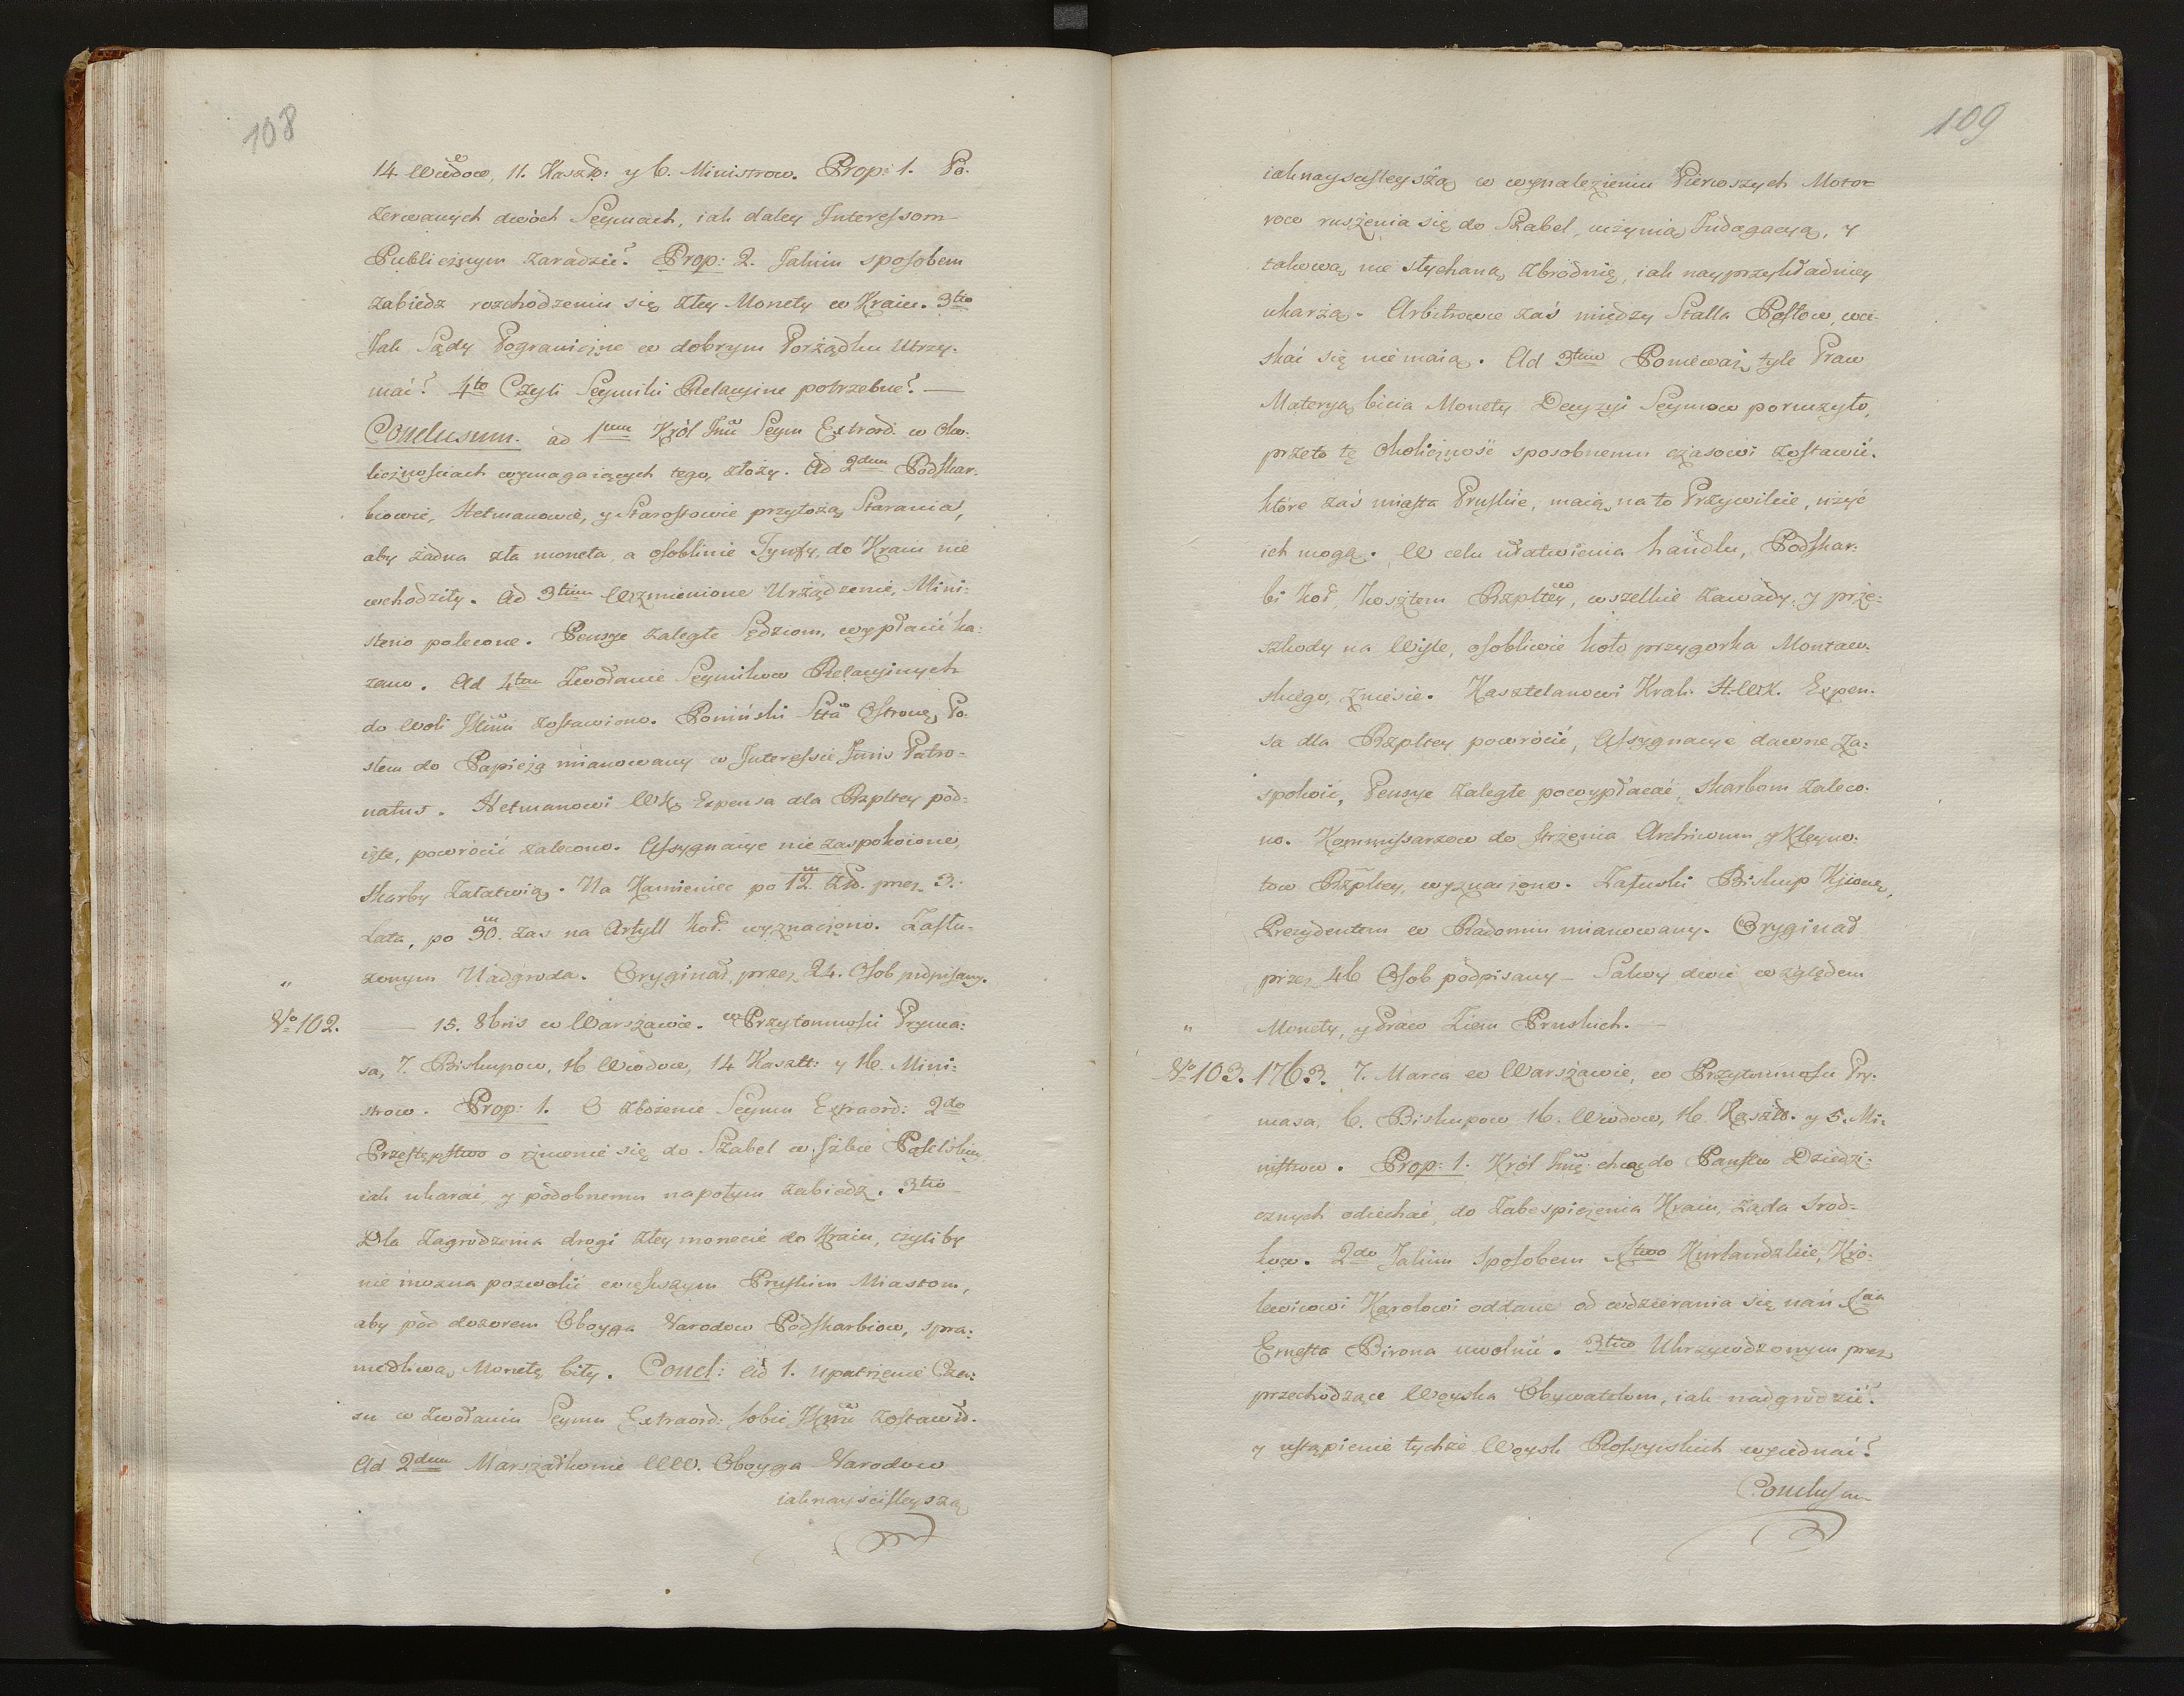 108
14 Wdow, 11. Kasztt: y 6. Ministrow. Prop: 1. Po
zerwanych dwóch Seymach, iak daley Interessom
Publicznym zaradzić? Prop: 2. Jakim sposobem
zabiedz rozchodzeniu się złey Monety w Kraiu. 3tio
Jak Sądy Pograniczne w dobrym Porządku utrzy-
mać? 4to Czyli Seymiki Relacyine potrzebne? —
Conclusum. ad 1mum Król Jmć Seym Extraord. w Oko-
licznościach wymagaiących tego, złoży. Ad 2dum Podskar-
biowie, Hetmanowie, y Starostowie przyłożą Starania,
aby żadna zła moneta, a osoblinie Tynfy, do Kraiu nie
wchodziły. Ad 3tium Wzmienione Urządzenie, Mini-
sterio polecone. Pensye zaległe Sędziom, wypłacić ka-
zano. Ad 4tum Zwołanie Seymikow Relacyinych
do Woli JKmci zostawiono. Poniński Stta Ostrowo, Po-
słem do Papieża mianowany w Interessie Juris Patro-
natus. Hetmanowi WK, Expensa dla Rzpltey pod-
ięte, powrócić zalecono. Assygnacye nie zaspokoione,
skarby załatwią. Na Kamieniec po 12m Złł. przez 3.
Lata, po 30m zas na Artyll Kor. wyznaczono. Zasłu-
żonym Nadgroda. Oryginał, przez 24. Osob podpisany.
"
No 102. — 15. 8bris w Warszawie. w Przytomności Pryma-
sa, 7. Biskupow, 16 Wdow, 14 Kasztt: y 16. Mini-
strow. Prop: 1. O złożenie Seymu Extraord: 2do
Przestępstwo o rzucenie się do Szabel w Izbie Poselskiey,
iak ukarać, y podobnemu napotym zabiedz. 3tio
Dla zagrodzenia drogi złey monecie do Kraiu, czyliby
nie można pozwolić większym Pruskim Miastom,
aby pod dozorem Oboyga Narodow Podskarbiow, spra-
wiedliwą, Monetę biły. Concl: Ad 1. upatrzenie Cza-
su w zwołaniu Seymu Extraord: sobie JKmć zostawił.
Ad 2dum Marszałkowie WW. Oboyga Narodow
iaknayściśleyszą
109
iaknayściśleyszą w wynalezieniu Pierwszych Moto-
row ruszenia się do Szabel, uczynią Indagacyą, y
takową nie słychaną zbrodnię, iak nayprzykładniey
ukarzą. Arbitrowie zaś między Stalla Posłow, wci-
skać się nie maią. Ad 3tium Ponieważ tyle Praw
Materyą bicia Monety Decyzyi Seymow poruczyło,
przeto tę Okoliczność sposobnemu czasowi zostawić.
które zaś miasta Pruskie, maią na to Przywileie, użyć
ich mogą. W celu ułatwienia handlu, Podskar-
bi Kor, kosztem Rzpltey, wszelkie zawady, y prze-
szkody na Wiśle, osobliwie koło przygorka Montaw-
skiego, zniesie. Kasztelanowi Krak. H.WK. Expen-
sa dla Rzpltey powrócić, Assygnacye dawne za-
spokoić, Pensye zaległe powypłacać, Skarbom zaleco-
no. Kommissarzow do strzeżenia Archiwum y Kleyno-
tow Rzpltey, wyznaczono. Załuski Biskup Kijow,
Prezydentem w Radomiu mianowany. Oryginał
przez 46 Osob podpisany — Salwy dwie względem
" Monety, y Praw Ziem Pruskich. —
No 103. 1763. 7. Marca w Warszawie, w Przytomności Pry-
masa, 6. Biskupow 16. Wdow, 16 Kasztt. y 5. Mi-
nistrow. Prop: 1. Król Jmć chcąc do Państw Dziedzi-
cznych odiechać, do zabespieczenia Kraiu, żąda srod-
kow. 2do Jakim Sposobem Xtwo Kurlandzkie, Kró-
lewicowi Karolowi oddane od wdzierania się nań Xcia
Ernesta Birona uwolnić. 3tio Ukrzywdzonym przez
przechodzące Woyska Obywatelom, iak nadgrodzić?
y ustąpienie tychże Woysk Rossyiskich wyiednać?
Conclusum